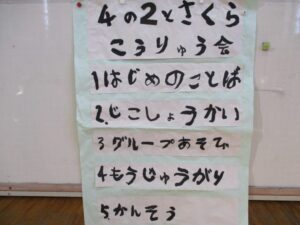 4の2とさくら
こうりゅう会
1はじめのことば
2.じこしょうかい
3グループあそび
4もうじゅうがり
5.かんそう